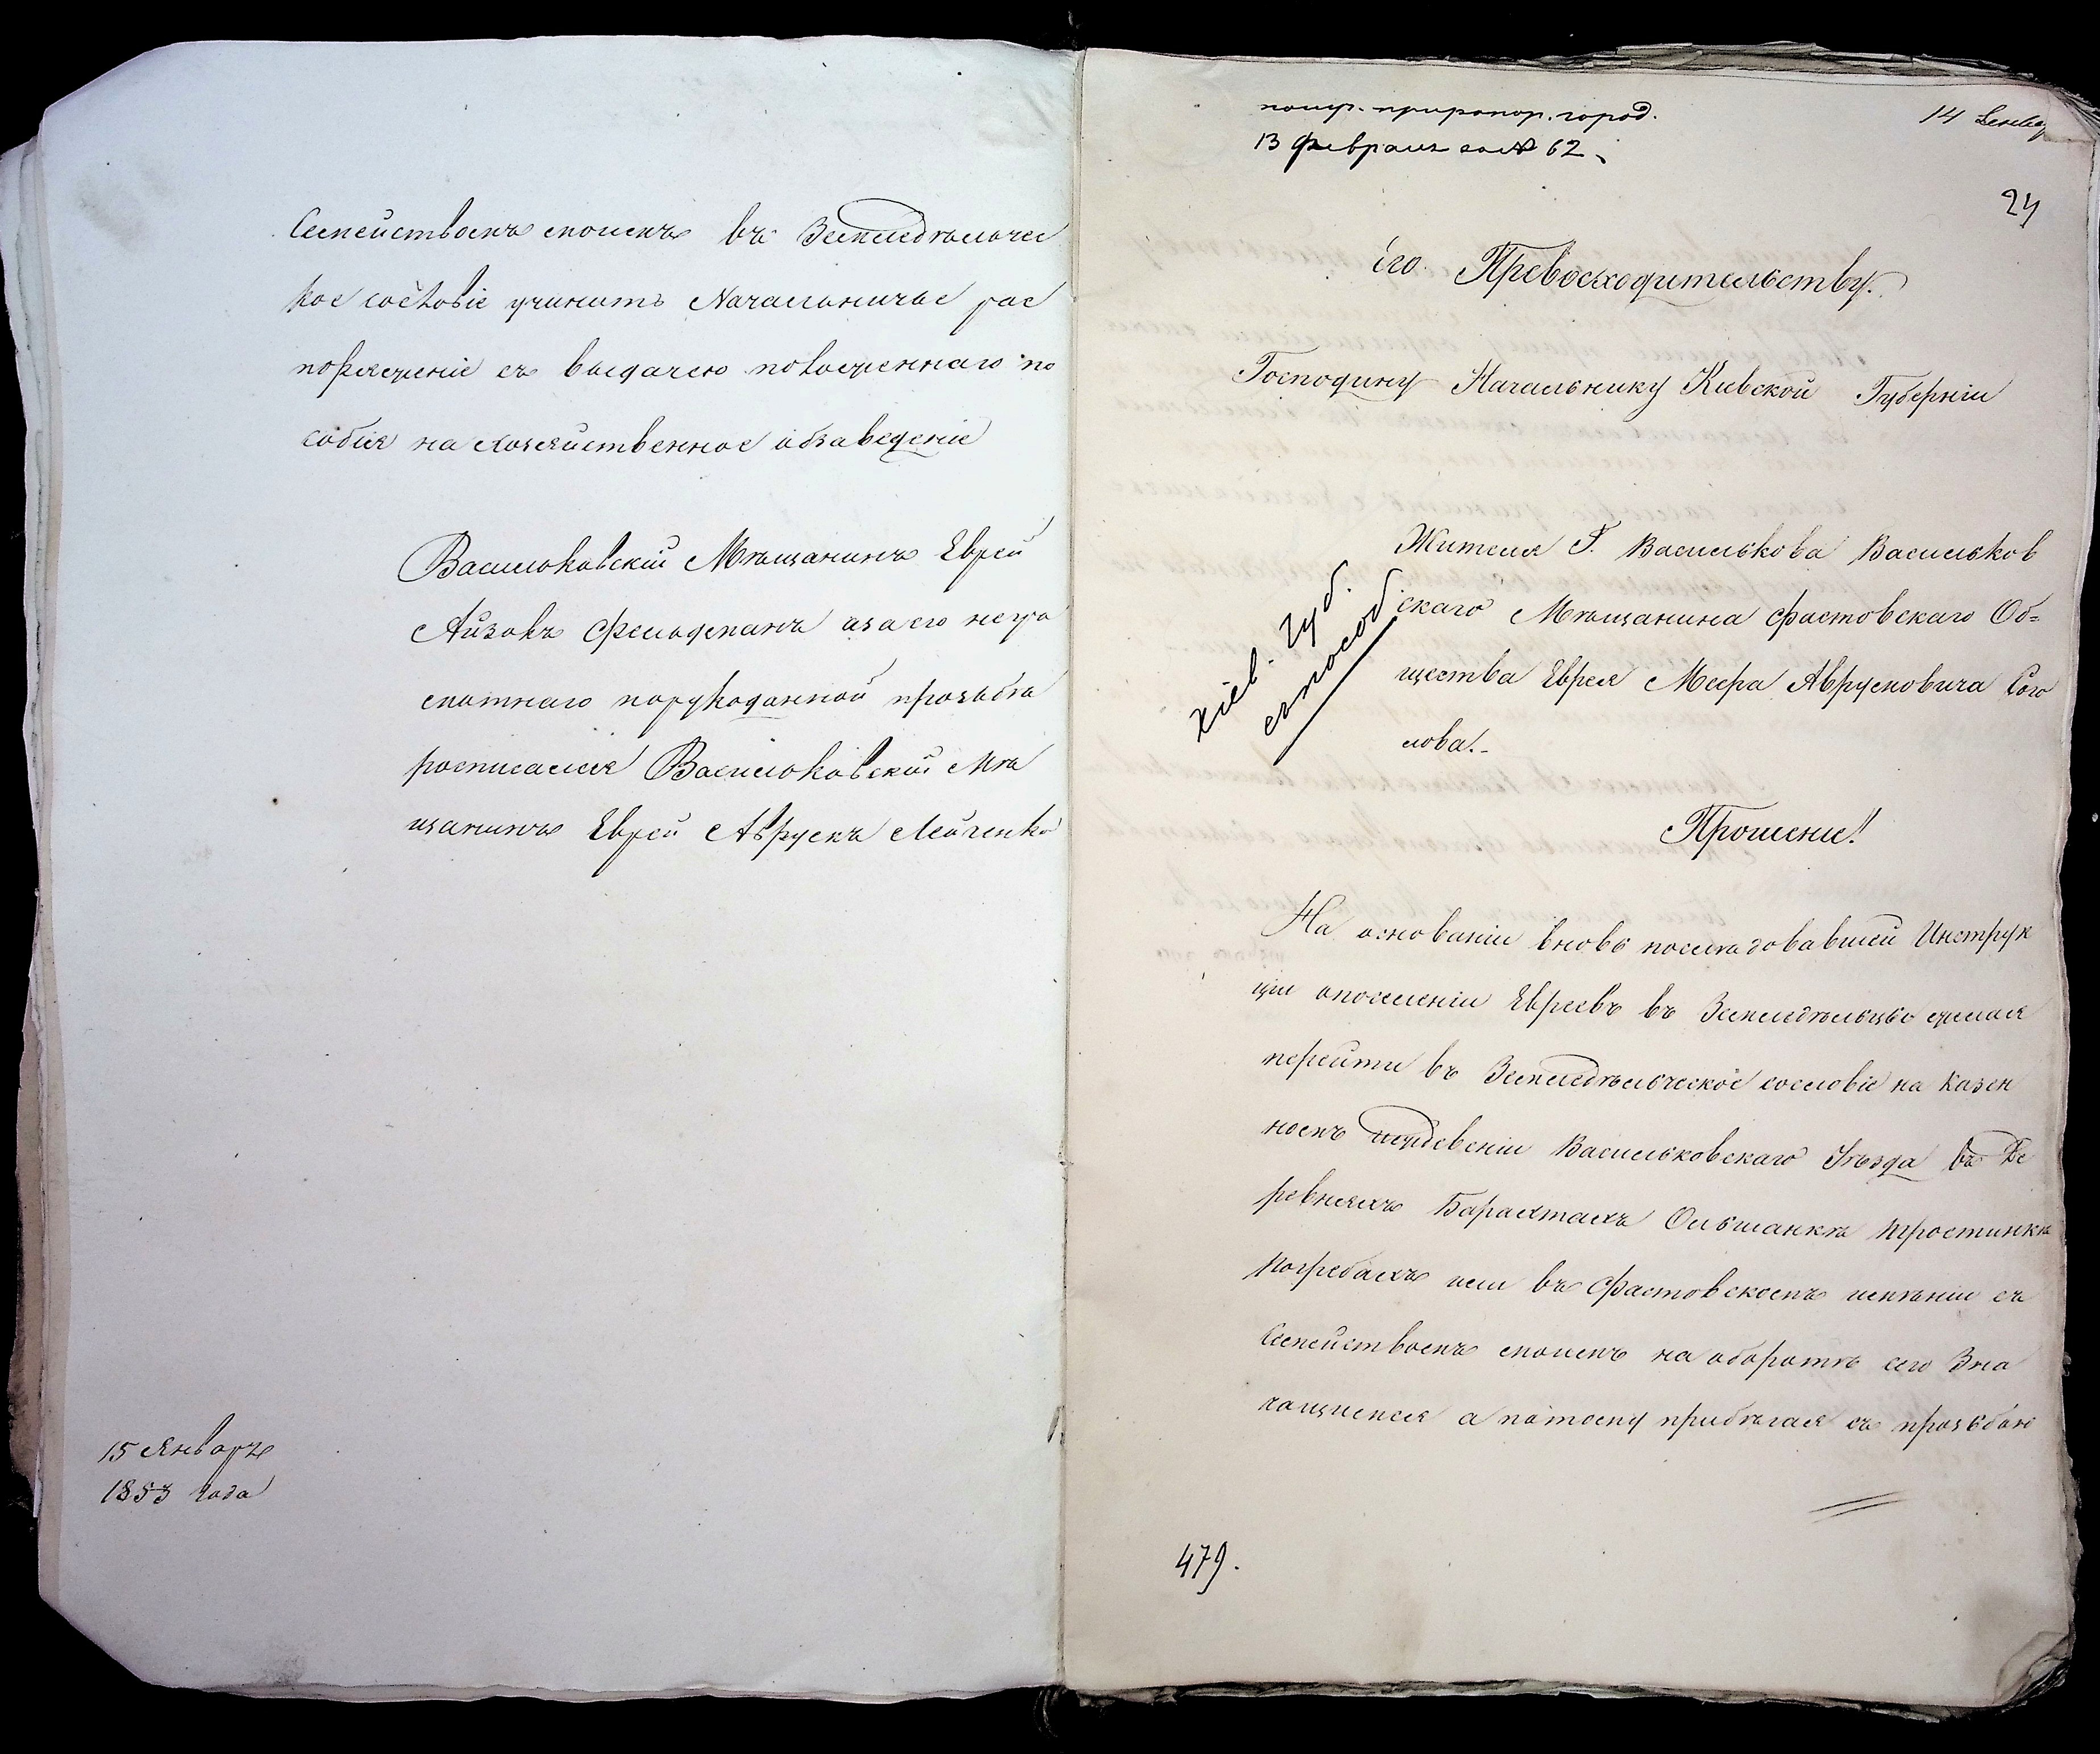 Семействомъ моимъ въ Земледѣльчес
кое сословіе учинить Начальничье рас
поряженіе съ выдачею положеннаго по
собія на хозяйственное обзаведеніе
Васильковскій Мѣщанинъ Еврей
Айзокъ Фельдманъ азаего негра
мотнаго порукоданной прозьбѣ
росписался Васильковскій Мѣ
щанинъ Еврей Аврумъ Лейченко
15 Январѣ
1853 года
город.
13 февраля за № 62.
14 Генвар
24
Его Превосходительству.
Господину Начальнику Киевской Губерніи
Жителя Г. Василькова Васильков
скаго Мѣщанина Фастовскаго Об=
щества Еврея Меера Аврумовича Сого
лова.-
Кіев. Губ.
съ пособ.
Прошение!
На основаніи вновь последовавшей Инструк
ціи опоселеніи Евреевъ въ Земледѣльцы желая
перейти въ Земледѣльческое сословіе на казен
номъ иждевеніи Васильковскаго Уѣзда въ Де
ревняхъ Барахтахъ Ольшанкѣ Тростинкѣ
Погребахъ или въ Фастовскомъ имѣніи съ
Семействомъ моимъ на оборотѣ сего Зна
чащимся а потому прибѣгая съ прозьбою
479.